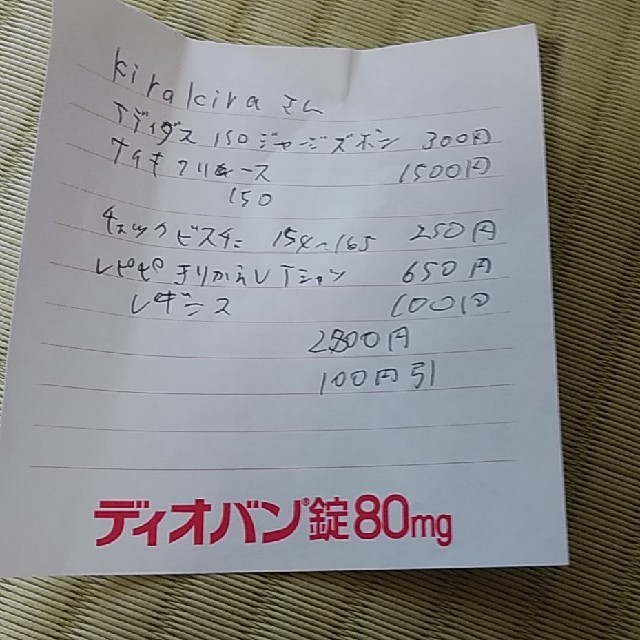 kirakiraさん
アディダス 150 ジャージズボン 300円
ナイキ フリース 1500円
150
チェックビスチェ 154~165 250円
レピピ 切りかえしTシャツ 650円
レギンス 100円
2800円
100円引
ディオバン®錠80mg